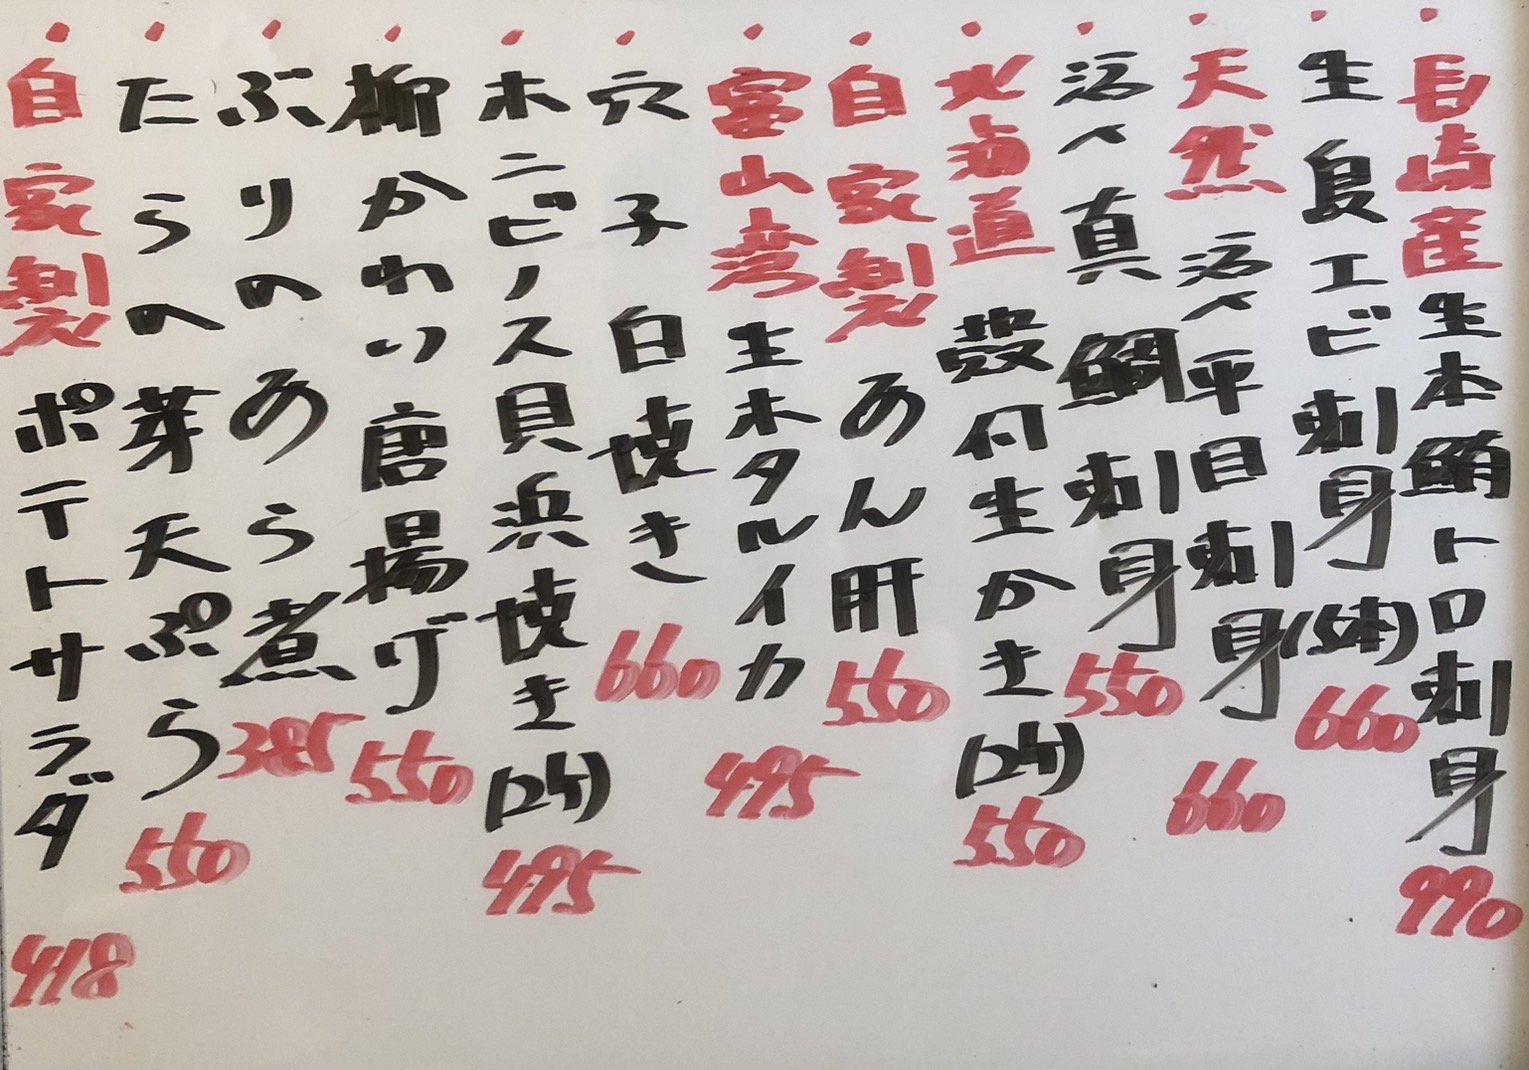 長崎産 生本鮪トロ刺身 990
生 良エビ刺身(5本) 660
天然 活〆平目刺身 660
活〆真鯛刺身 550
北海道 殻付生かき(2ケ) 550
自家製 あん肝 550
富山湾 生ホタルイカ 495
穴子白焼き 660
ホンビノス貝浜焼き(2ケ) 495
柳かれい唐揚げ 550
ぶりのあら煮 385
たらの芽天ぷら 550
自家製 ポテトサラダ 418